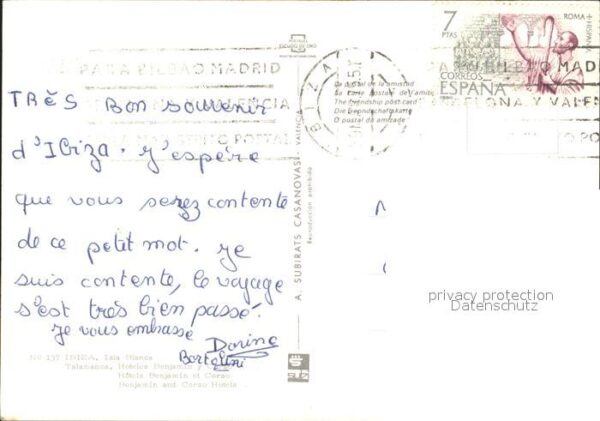 TRÈS Bon souvenir
d'Ibiza. J'espère
que vous serez contente
de ce petit mot. Je
suis contente, le voyage
s'est très bien passé.
Je vous embrasse
Dorine
Bortolini
Nº 137 IBIZA, Isla Blanca
Talamanca, Hoteles Benjamin y Corso
Hôtels Benjamin et Corso
Benjamin and Corso Hotels
A. SUBIRATS CASANOVAS - VALENCIA
Reproducción prohibida
PARA BILBAO MADRID
IBIZA
La postal de la amistad
La carte postale de l'amitié
The friendship post card
Die Freundschaftskarte
O postal da amizade
7
PTAS
ROMA +
HISPANIA
CORREOS
ESPAÑA
privacy protection
Datenschutz